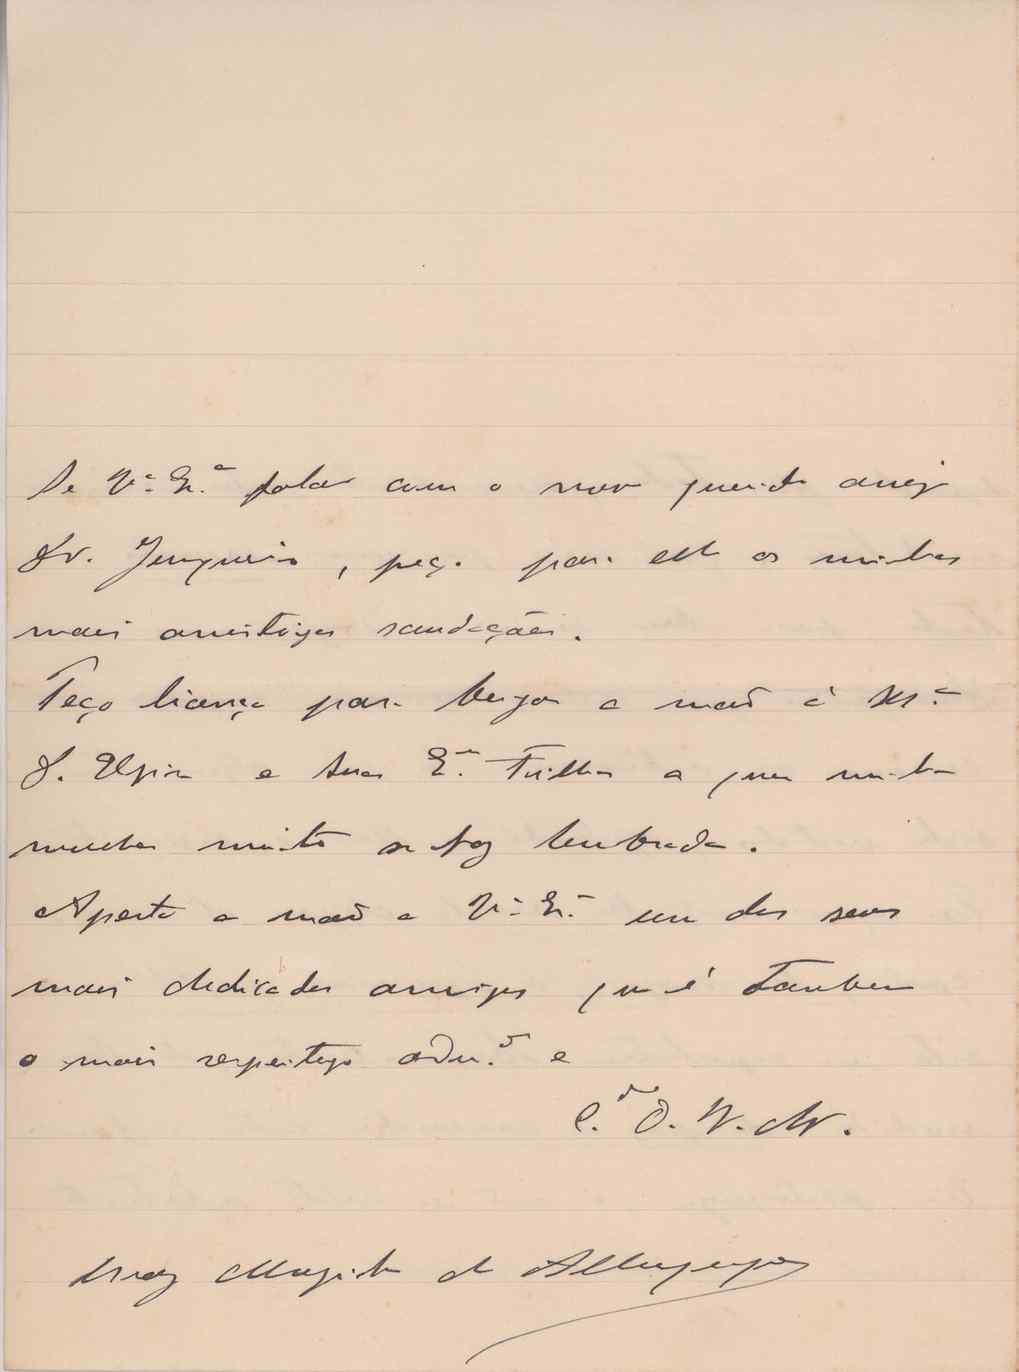 Se V.ª Ex.ª falar com o nosso querido amigo
Dr. Junqueiro, peço para elle as minhas
mais amistosas saudações.
Peço licença para beijar a mão á Sr.ª
D. Elzira e Suas Ex.mas Filhas a quem minha
mulher muito se faz lembrada.
Aperta a mão a V.ª Ex.ª um dos seus
mais dedicados amigos que é tambem
o mais respeitoso adm.or e
C.do O. V. M.
Luiz Mágrito de Albuquerque